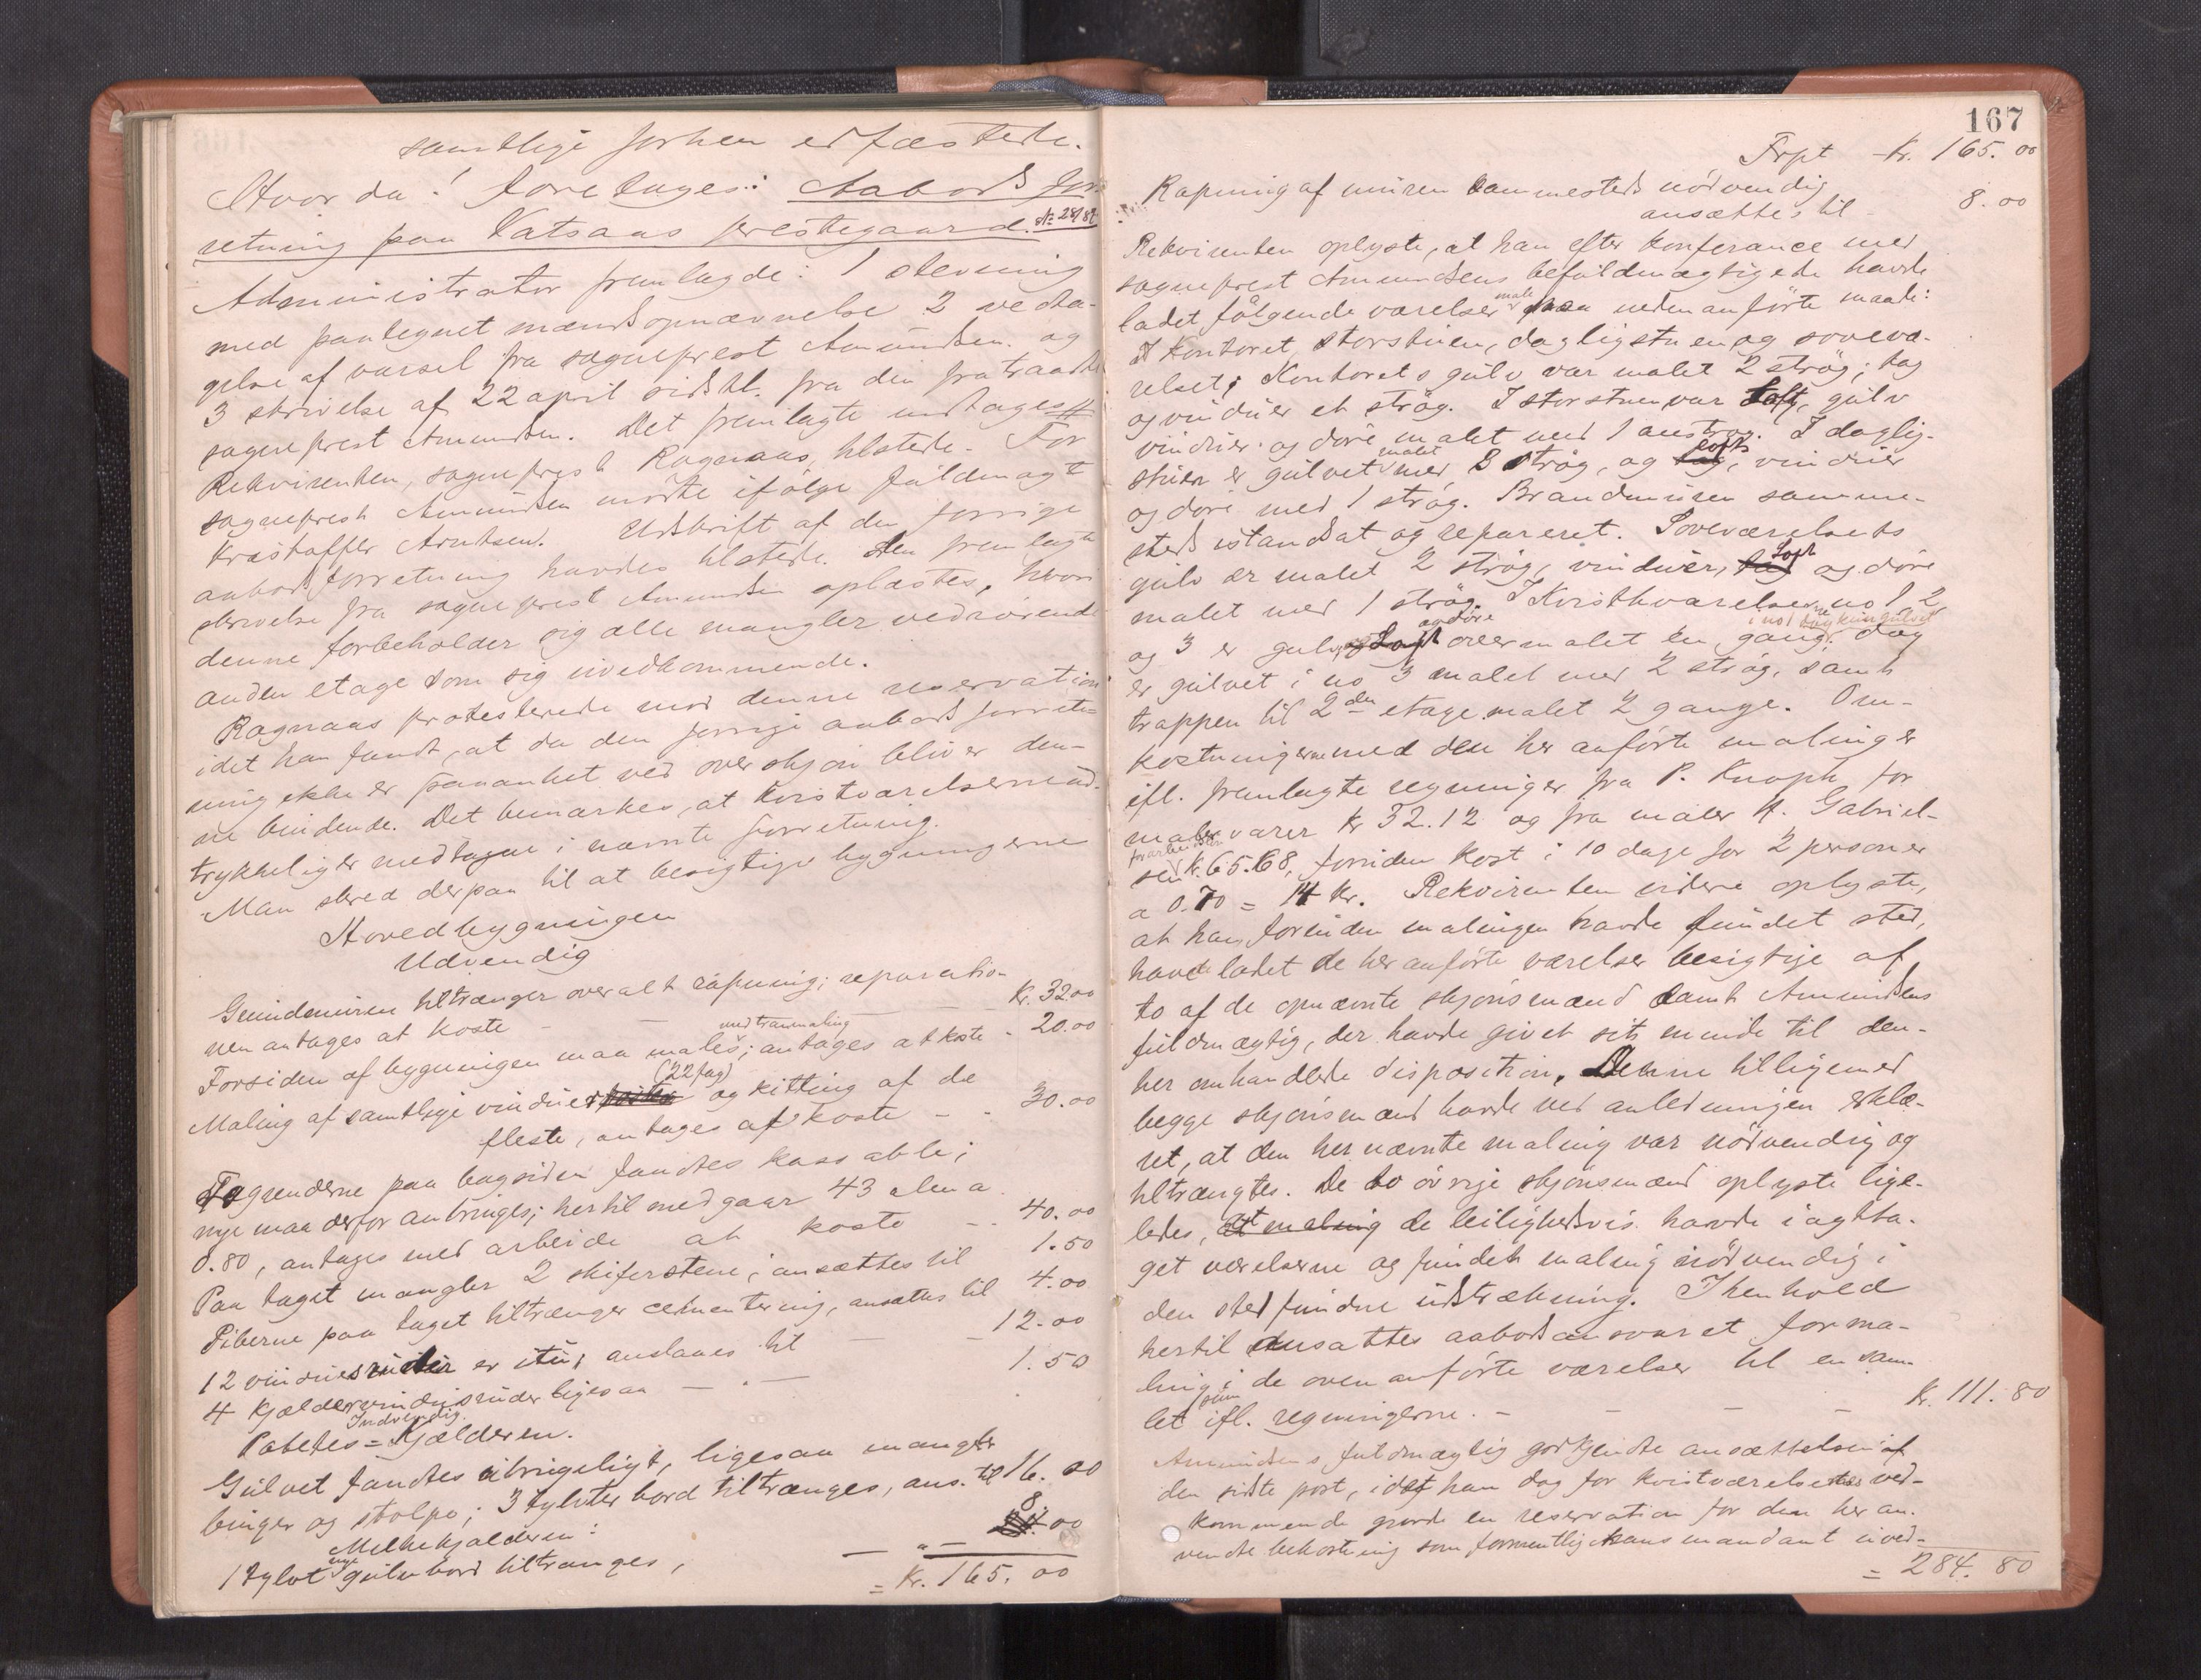 samtlige forhen edfæstede.
Hvor da! foretages: Aabodsfor
retning paa Vatsaas prestegaard. No 28/89
Administrator fremlagde: 1 stevning
med paategnet mændsopnævnelse 2 vedta-
gelse af varsel fra sogneprest Amundsen. og
3 skrivelse af 22 april sidstl. fra den fratraadte
sogneprest Amundsen. Det fremlagte indtages #
Rekvirenten, sogneprest Ragnaas, tilstede. For
sogneprest Amundsen mødte ifølge fuldmagt
Kristoffer Arntsen. Udskrift af den forrige
aabodsforretning havdes tilstede. Den fremlagte
skrivelse fra sogneprest Amundsen oplæstes, hvori
denne forbeholder sig alle mangler vedrørende
anden etage som sig uvedkommende.
Ragnaas protesterede mod denne reservation
idet han fandt, at da den forrige aabodsforret-
ning ikke er paaanket ved overskjøn bliver den-
ne bindende. Det bemærkes, at kvistværelserne ud-
trykkelig er medtagne i nævnte forretning.
Man skred derpaa til at besigtige bygningerne
Hovedbygningen
Udvendig
Grundmuren tiltrænger overalt rapning; reparatio-
nen antages at koste - - - Kr. 32.00
Forsiden af bygningen maa males med tranmaling; antages at koste - 20.00
Maling af samtlige vinduer (22 fag) og kitting af de
fleste, antages at koste - - 30.00
Tagrenderne paa bagsiden fandtes kassable;
nye maa derfor anbringes; hertil medgaar 43 alen a
0.80, antages med arbeide at koste - - 40.00
Paa taget mangler 2 skiferstene; ansættes til 1.50
Piberne paa taget tiltrænger cementering, ansættes til 4.00
12 vinduesruder er itu; anslaaes til - - 12.00
4 kjældervinduesruder ligesaa - " - 1.50
Indvendig.
Potetes = Kjælderen.
Gulvet fandtes ubrugeligt, ligesaa mangler
binger og stolpe; 3 tylvter bord tiltrænges, ans. til 16.00
Melkekjælderen:
1 tylvt nye gulvbord tiltrænges, - " - 8.00
= Kr. 165.00
167
Frpt Kr. 165.00
Rapning af muren sammesteds nødvendig
ansættes til - 8.00
Rekvirenten oplyste, at han efter konferance med
sogneprest Amundsens befuldmægtigede havde
ladet følgende værelser male paa nedenanførte maade:
I kontoret, storstuen, dagligstuen og soveværelset.
relset; Kontorets gulv var malet 2 strøg; tag
og vinduer et strøg. I storstuen var loft, gulv
vinduer og døre malet med 1 anstrøg. I daglig-
stuen er gulvet malet med 2 strøg, og loft, vinduer
og døre med 1 strøg. Brandmuren samme-
steds istandsat og repareret. Soveværelsets
gulv er malet 2 strøg, vinduer, loft og døre
malet med 1 strøg. I Kvistværelserne no 1, 2
og 3 er gulv og døre overmalet en gang. dog
er gulvet i no 3 malet med 2 strøg, samt
trappen til 2den etage malet 2 gange. Om-
kostningerne med den her anførte maling er
ifl. fremlagte regninger fra P. Knoph for
malervarer kr 32.12 og fra maler A. Gabriel-
sen for arbeidsløn kr. 65.68, foruden kost i 10 dage for 2 personer
a 0.70 = 14 kr. Rekvirenten videre oplyste,
at han, forinden malingen havde fundet sted,
havde ladet de her anførte værelser besigtige af
to af de opnævnte skjønsmænd samt Amundsens
fuldmægtig, der havde givet sit minde til den
her omhandlede disposition. Denne tilligemed
begge skjønsmænd havde ved anledningen erklæ-
ret, at den her nævnte maling var nødvendig og
tiltrængtes. De to øvrige skjønsmænd oplyste lige-
ledes, at de leilighedsvis havde iagtta-
get værelserne og fundet maling nødvendig i
den stedfundne udstrækning. I henhold
hertil ansattes aabodsansvaret for ma-
ling i de ovenanførte værelser til en sam-
let sum ifl. regningerne. - - - - Kr. 111.80
Amundsens fuldmægtig godkjendte ansættelsen af
den sidste post, idet han dog for kvistværelsernes ved-
kommende gjorde en reservation for den her an-
vendte bekostning som formentlig hans mandant uved-
= 284.80